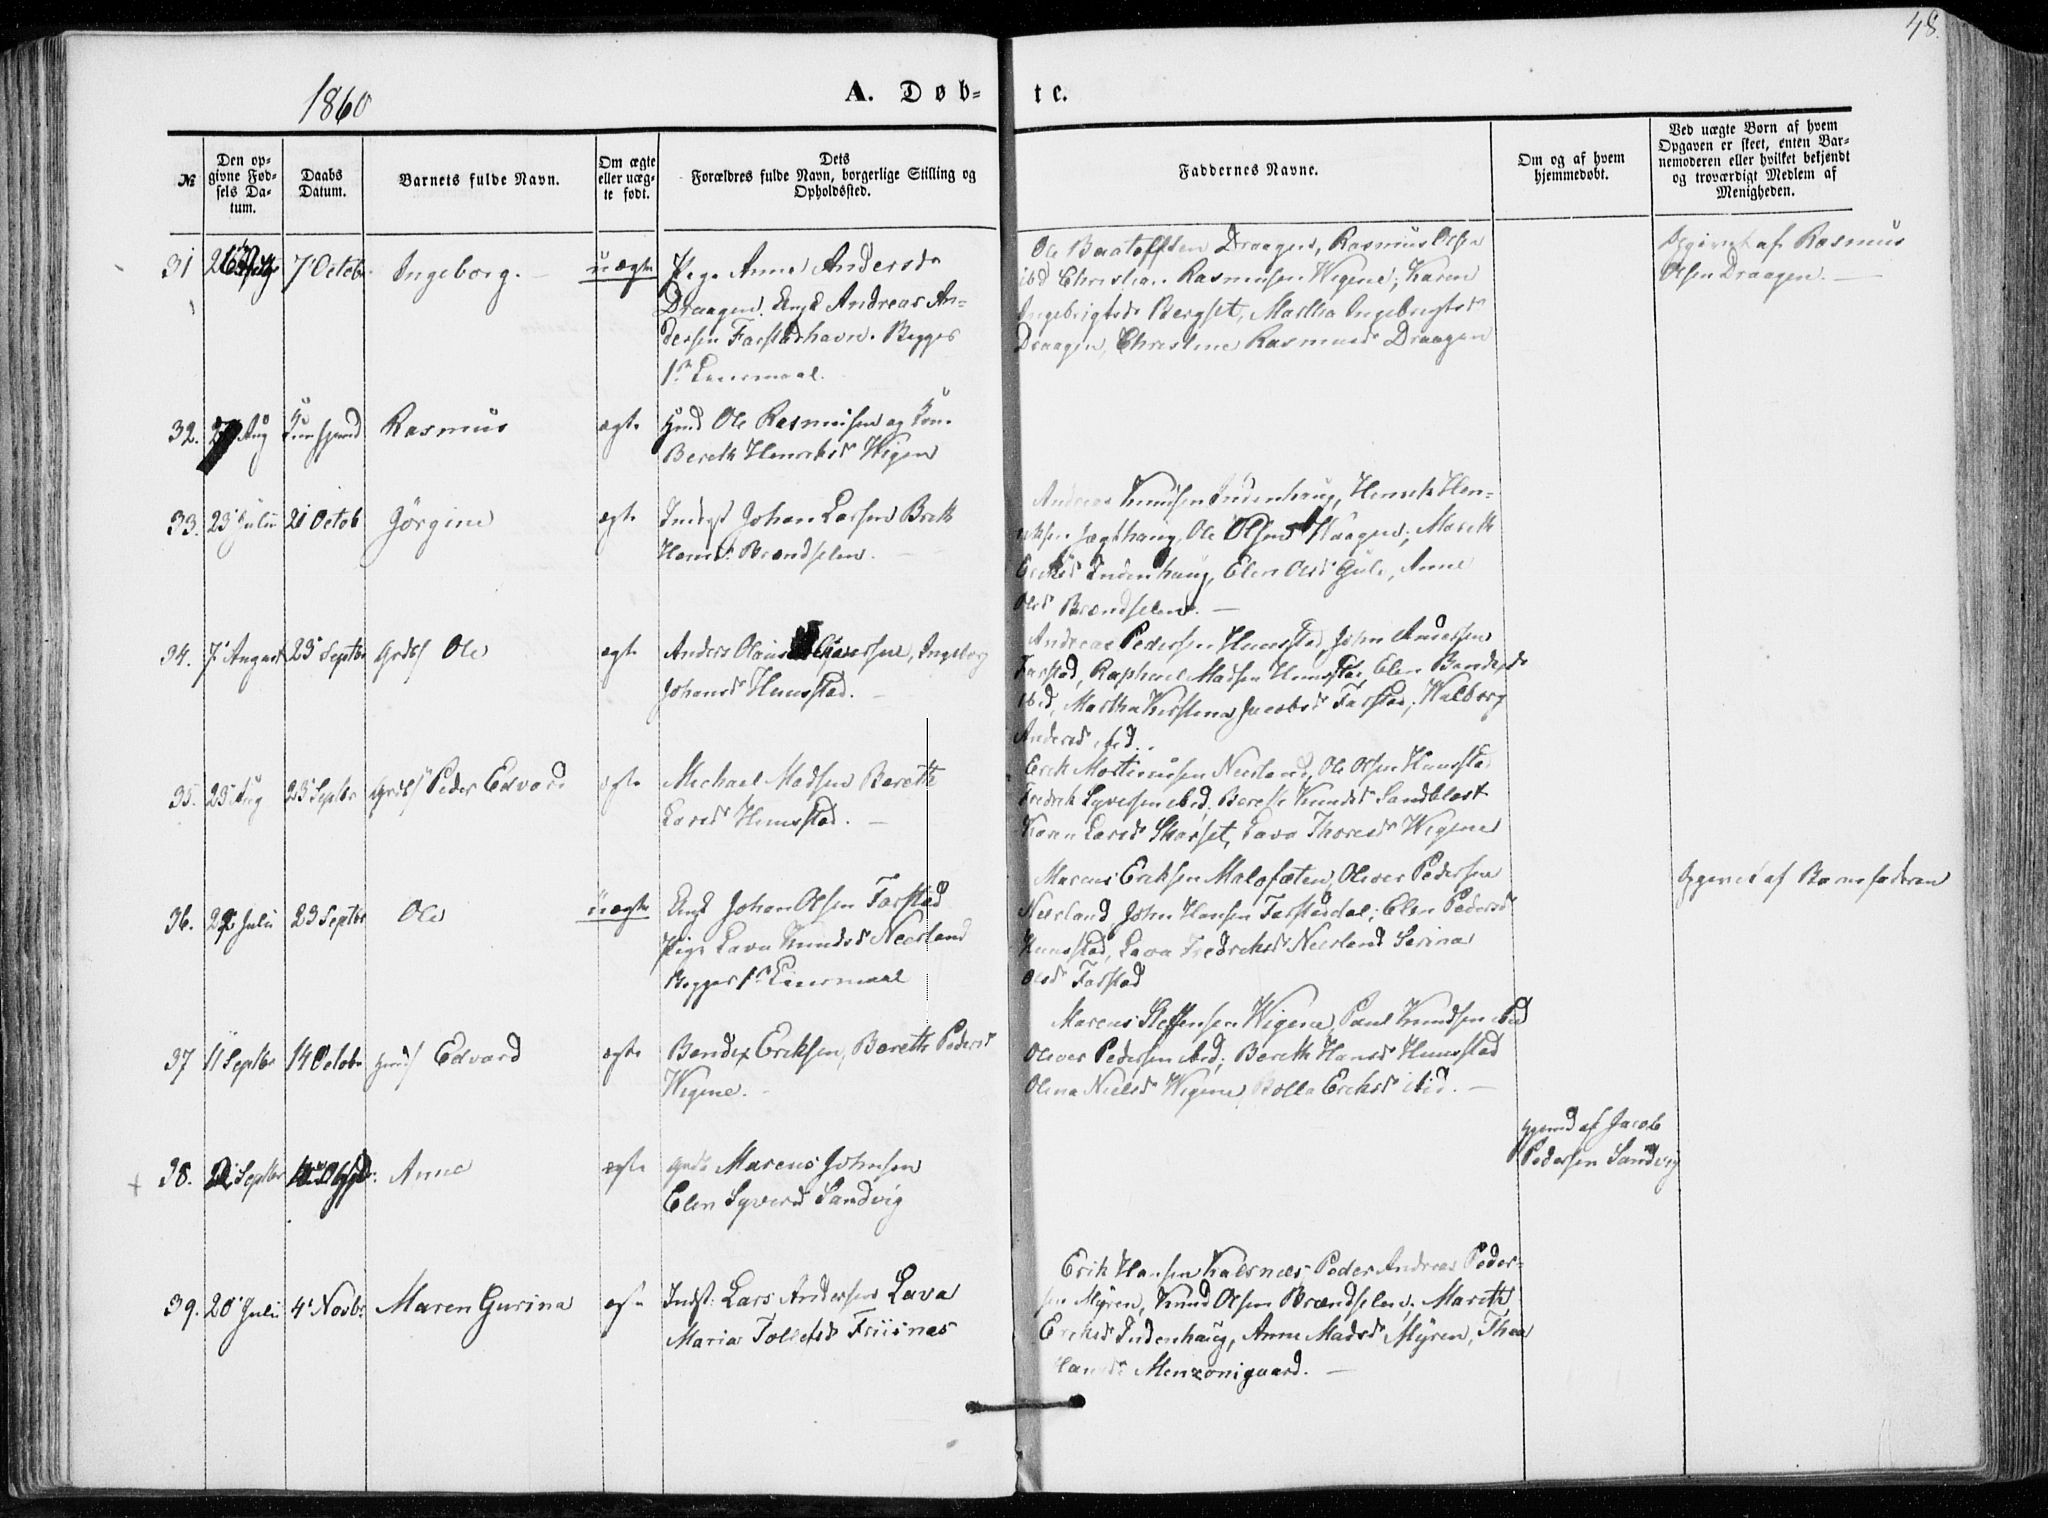 48.
1860
A. Døb-
te.
№
Den op-
givne Fød-
sels Da-
tum.
Daabs
Datum.
Barnets fulde Navn.
Om ægte
eller uæg-
te født.
Dets
Forældres fulde Navn, borgerlige Stilling og
Opholdssted.
Faddernes Navne.
Om og af hvem
hjemmedøbt.
Ved uægte Børn af hvem
Opgaven er skeet, enten Bar-
nemoderen eller hvilket bekjendt
og troværdigt Medlem af
Menigheden.
31
7 Octobr
Ingeborg. —
uægte
Pige Anne Andersd
Draagen. Ungk Andreas An-
dersen Farstadhavn. Begges
1ste Leiermaal.
Ole Draagen, Rasmus Olsen
ibd Christian Rasmussen Wigene, Karen
Ingebrigtsd Bergset, Martha Ingebrigtsd
Draagen, Christine Rasmusd Draagen
Opgivet af Rasmus
Olsen Draagen. —
32.
Aug
Rasmus
ægte
Gmd Ole Rasmussen og Kone
Bereth Henriksd Wigen
33.
23 Julii
21 Octob
Jörgine
ægte
Johan Larsen Breth
Hansd Brændselen. —
Andreas Knudsen Indenhaug, Henrik Hen-
riksen Jægthaug, Ole Olsen Haagen; Mareth
Eriksd Indenhaug, Elen Olsd Gule, Anne
Olsd Brændselen. —
34.
7 August
23 Septbr
Grdbs Ole
ægte
Anders Olaus Iversen, Ingeborg
Johansd Hunsstad. —
Andreas Pedersen Hunsstad, John Andersen
Farstad, Raphael Madsen Hunsstad, Elen Bendixsd
ibid, Martha Kirstina Jacobsd Farstad, Walborg
Andersd ibid.
35.
25 Aug
23 Septbr
Grdbs Peder Edvard
ægte
Michael Madsen Berette
Larsd Hunsstad. —
Erik Mortinusen Neerland, Ole Olsen Hunsstad
Fredrik Syversen ibid. Berette Knudsd Sandblast
Karen Larsd Skarset, Lava Thoresd Wigene
36.
22 Julii
23 Septbr
Ole
uægte
Ungk Johan Olsen Farstad
Pige Lava Knudsd Neerland
Begges 1ste Leiermaal
Marcus Eriksen Malefæten, Oliver Pedersen
Neerland John Hansen Farstaddal; Elen Pedersd
Hunsstad, Lava Fredriksd Neerland Serina
Olsd Farstad
Opgivet af Barnefaderen
37
11 Septbr
14 Octobr
Gmds Edvard
ægte
Bendix Eriksen, Bereth Pedersd
Wigene. —
Marcus Steffensen Wigene, Paul Knudsen ibid
Oliver Pedersen ibid; Bereth Hansd Hunsstad
Olina Nielsd Wigene, Eriksd ibid. —
38.
Septbr
Anne
ægte
Grdb Marcus Johnsen
Elen Syversd Sandvig
Hjemd af Jacob
Pedersen Sandvig
39.
20 Juli
4 Novbr
Maren Gurina
ægte
Indst: Lars Andersen Lava
Maria Tollefsd Friisnæs
Erik Hansen Kalsnæs, Peder Andreas Peder-
sen Myren, Knud Olsen Brændselen; Mareth
Eriksd Indenhaug, Anne Madsd Myren, Thea
Hansd Menzonigaard. —